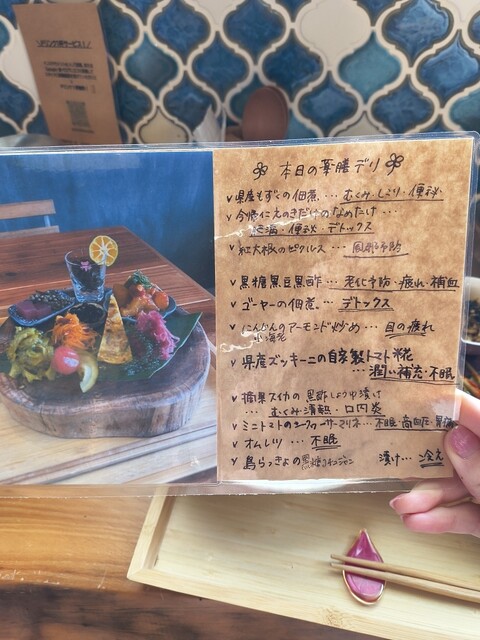 本日の薬膳デリ
✓県産もずくの佃煮 … むくみ・しこり・便秘
✓今帰仁えのきだけのなめたけ …
肥満・便秘・デトックス
✓紅大根のピクルス … 風邪予防
✓黒糖黒豆黒酢 … 老化予防・疲れ・補血
✓ゴーヤーの佃煮 … デトックス
✓にんじんのアーモンド炒め … 目の疲れ
✓県産ズッキーニの自家製トマト糀
… 潤い補充・不眠
✓摘果スイカの黒酢しょうゆ漬け
… むくみ・清熱・口内炎
✓ミニトマトのシークヮーサーマリネ … 不眠・高血圧
✓オムレツ … 不眠
✓島らっきょの黒糖コチュジャン 漬け … 冷え